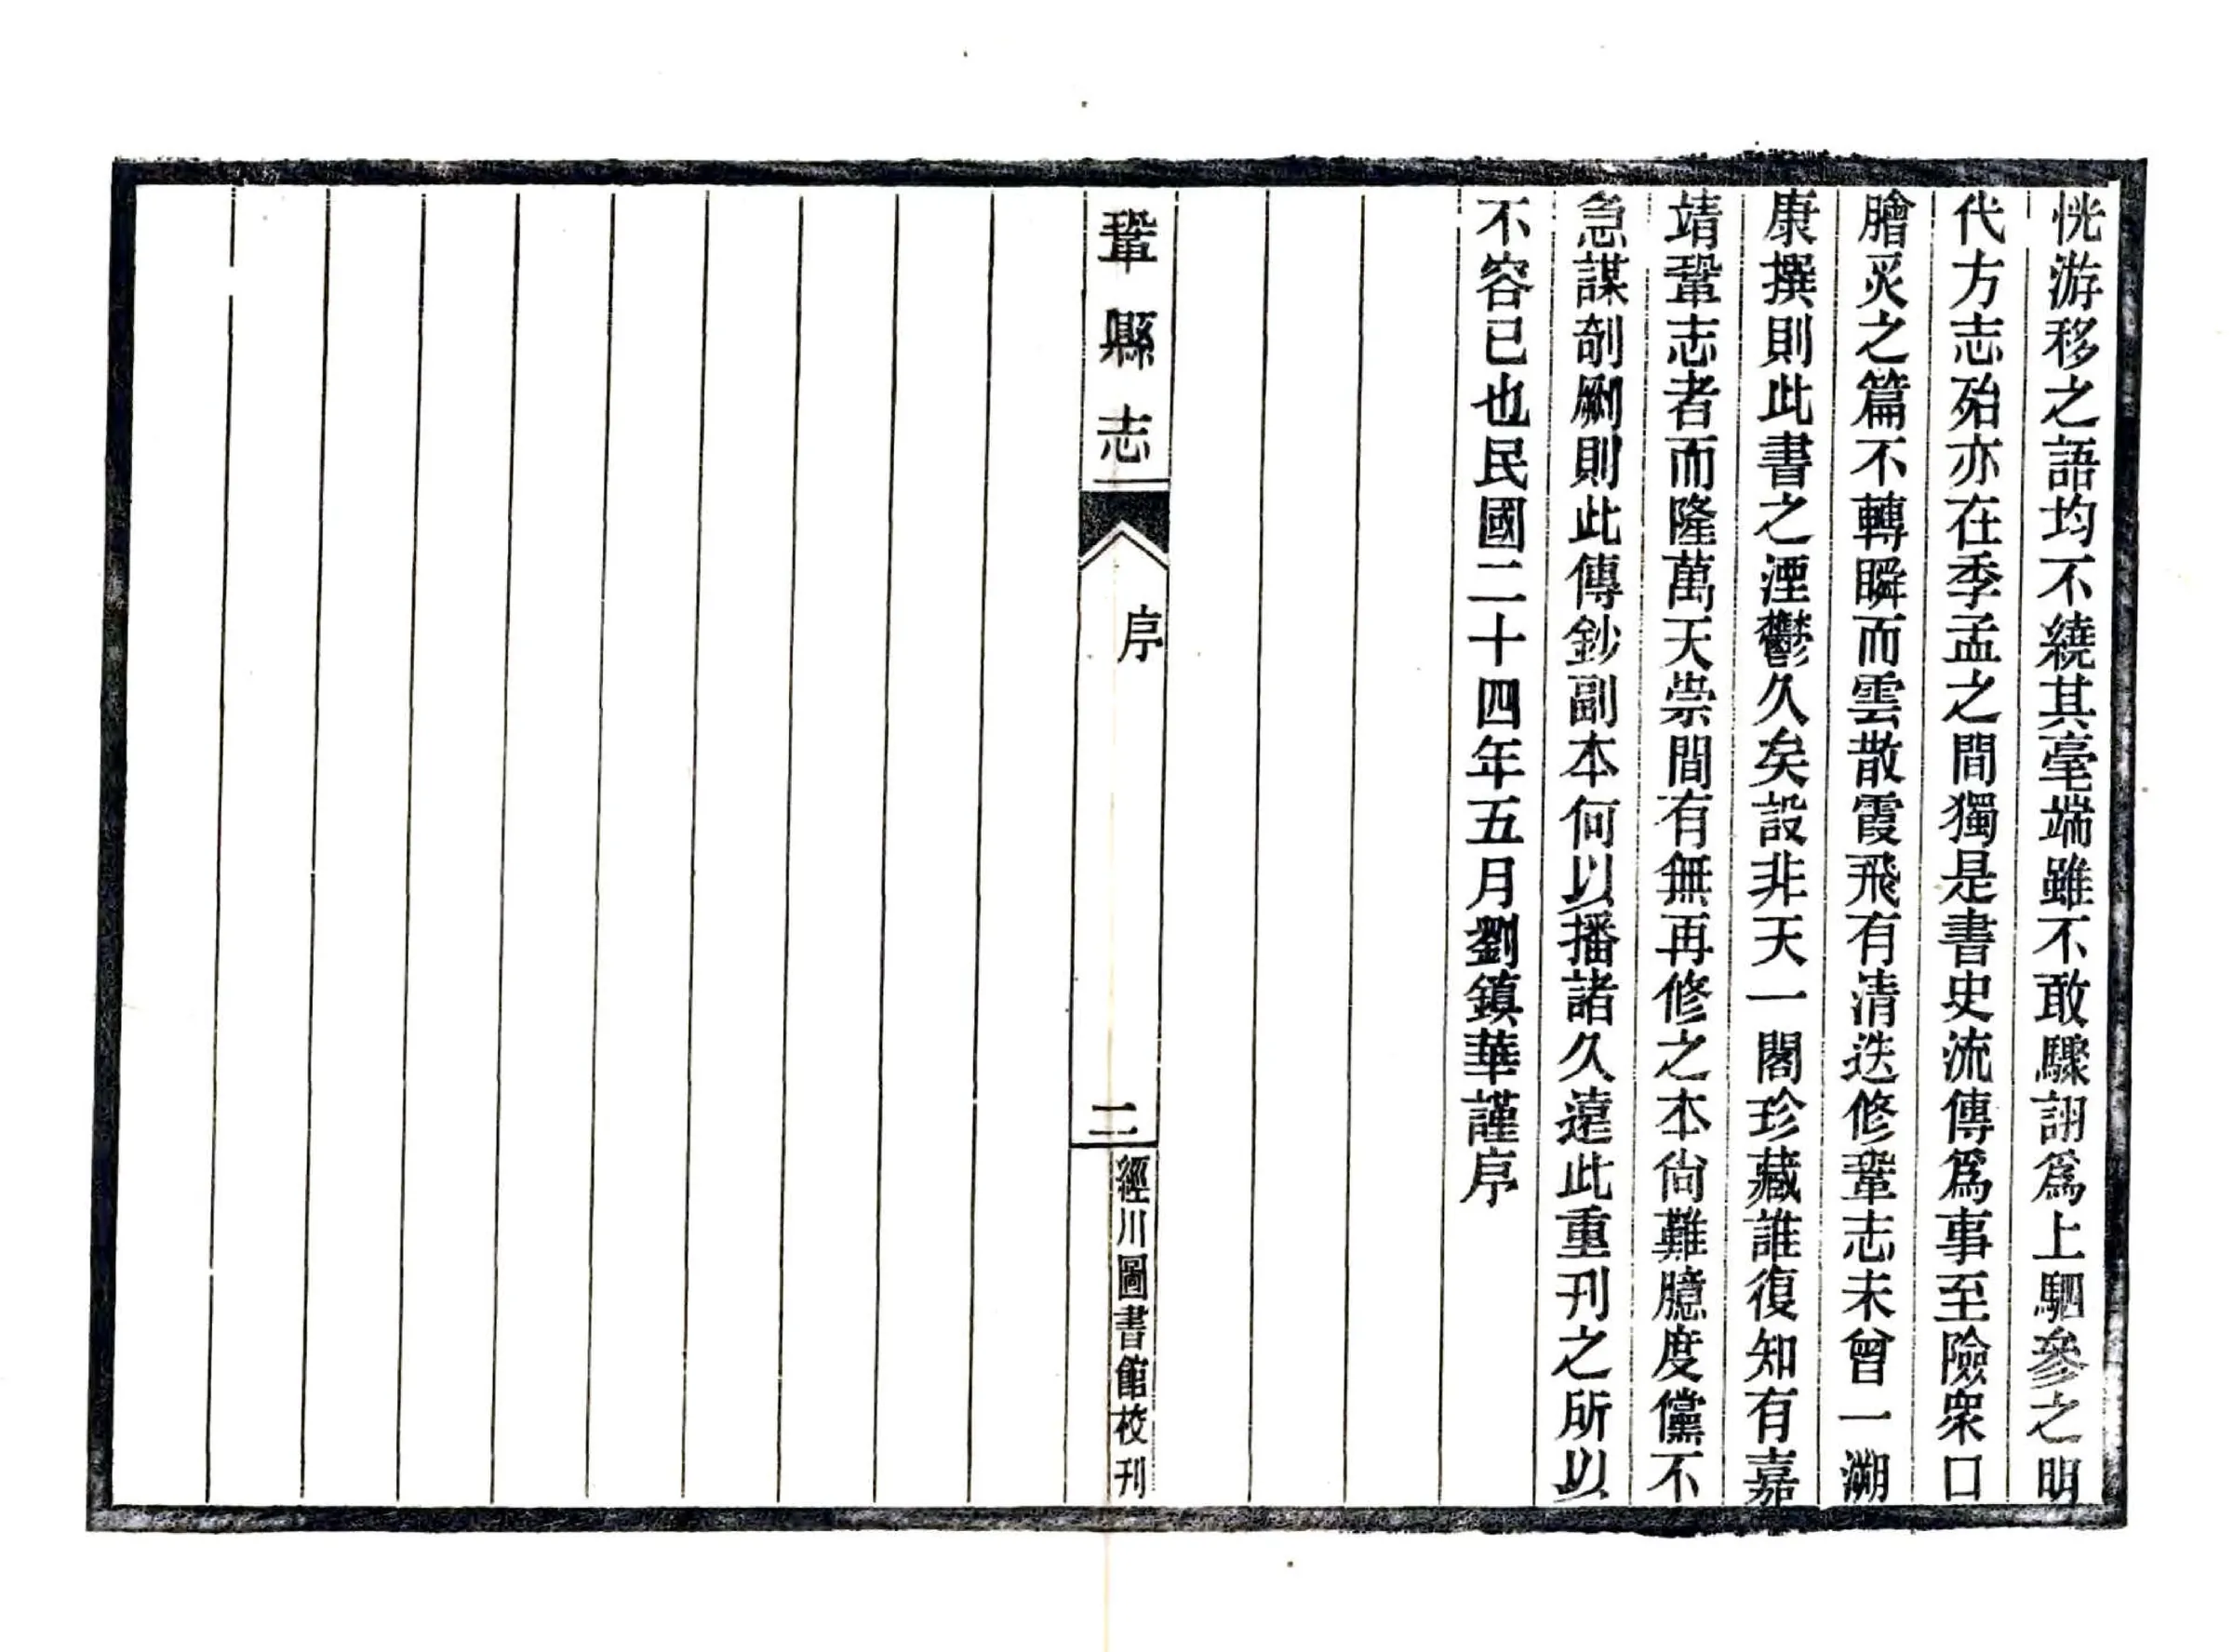 恍游移之語均不繞其毫端雖不敢驟詡爲上駟參之明
代方志殆亦在季孟之間獨是書史流傳爲事至險衆口
膾炙之篇不轉瞬而雲散霞飛有清迭修鞏志未曾一溯
康撰則此書之湮鬱久矣設非天一閣珍藏誰復知有嘉
靖鞏志者而隆萬天崇間有無再修之本尙難臆度儻不
急謀剞劂則此傳鈔副本何以播諸久遠此重刊之所以
不容已也民國二十四年五月劉鎮華謹序
鞏縣志
序
二
經川圖書館校刊